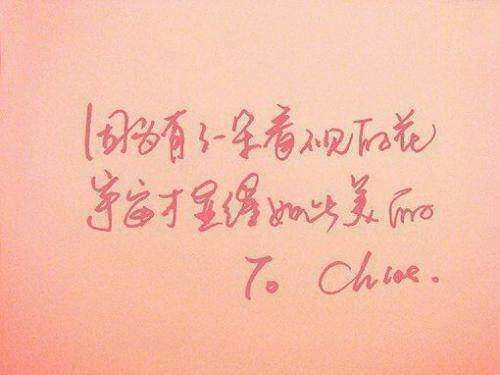 因为有了一朵看不见的花
宇宙才显得如此美丽
To Chloe.